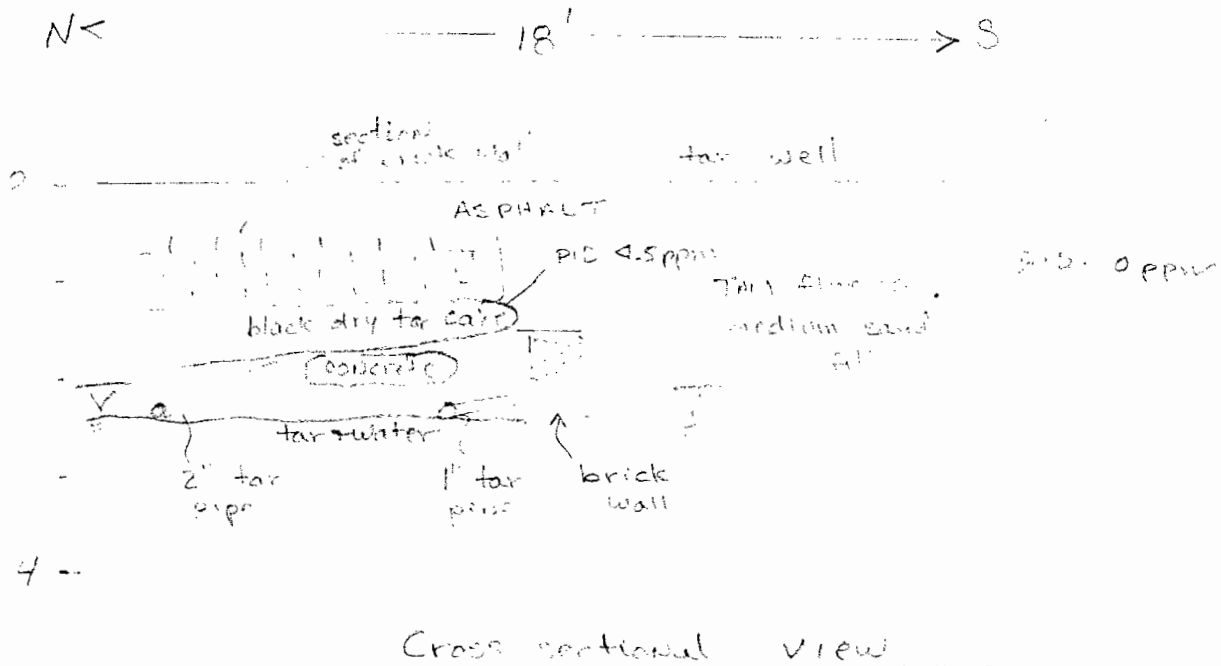 N< 18' > S
section
of brick wall
tar well
0
ASPHALT
PID 4.5ppm
0 ppm
black dry tar
medium sand
fill
concrete
tar + water
2" tar
pipe
1" tar
pipe
brick
wall
4
Cross sectional view